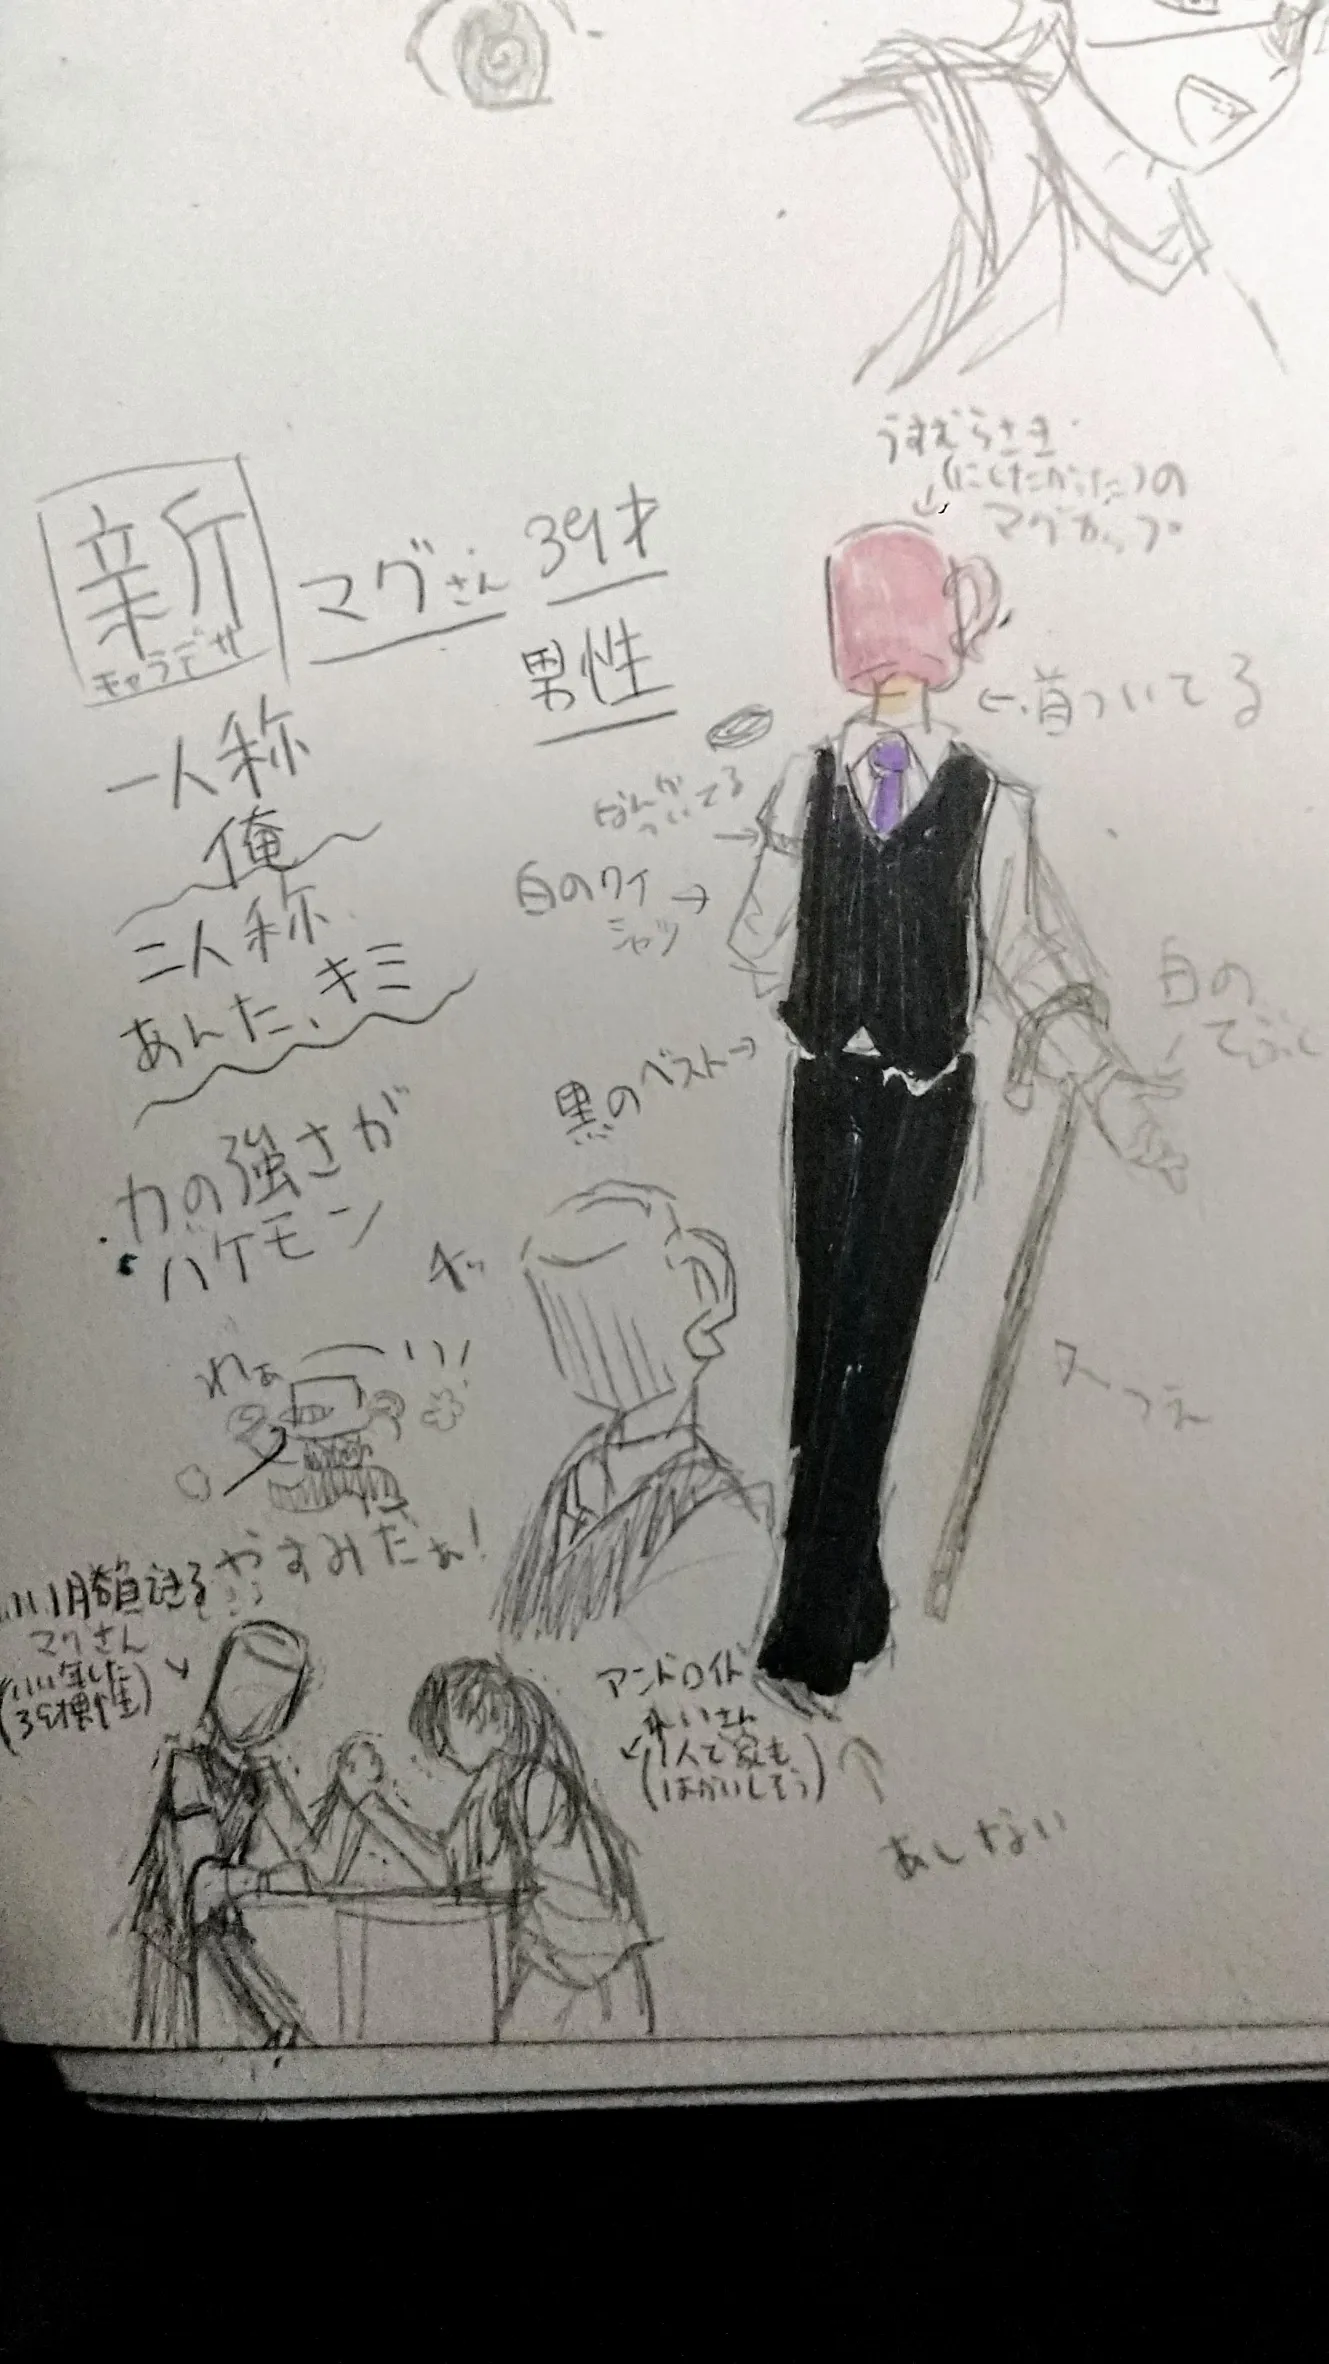 うすむらさき
(にしたかった)の
マグカップ
新
キャラデザ
マグさん
39才
男性
←首ついてる
一人称
俺
なんか
ついてる
白のワイ
シャツ
二人称
あんた、キミ
白の
てぶくろ
黒のベスト→
力の強さが
バケモン
わぁ
やすみだぁ!
つえ
マグさん
(いい年した
39男性)
アンドロイド
れいさん
(1人で家も
はかいしそう)
あしない